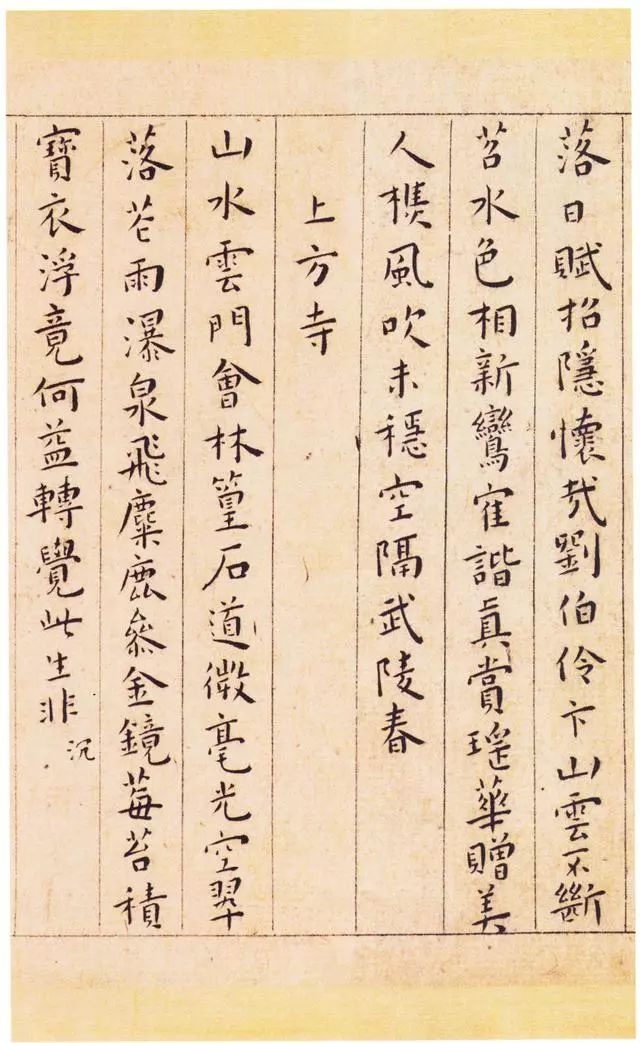 落日賦招隱懷哉劉伯伶卞山雲不斷
苕水色相新鸞隺諧真賞瑤華贈美
人樵風吹未穩空隔武陵春
上方寺
山水雲門會林篁石道微毫光空翠
落花雨瀑泉飛麋鹿叅金鏡莓苔積
寶衣浮竟何益轉覺此生非
沉